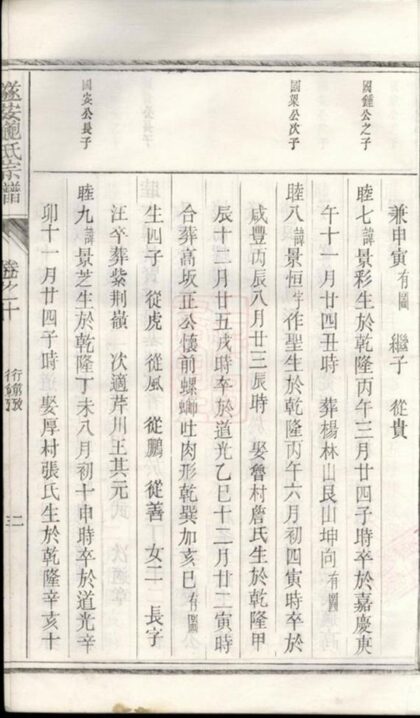 兼申寅有圖 繼子 從貴
國鍾公之子
睦七諱景彩生於乾隆丙午三月廿四子時卒於嘉慶庚
午十一月廿四丑時 葬楊林山艮山坤向有圖
國梁公次子
睦八諱景恒字作聖生於乾隆丙午六月初四寅時卒於
咸豐丙辰八月廿三辰時 娶魯村詹氏生於乾隆甲
辰十二月廿五戌時卒於道光乙巳十二月廿二寅時
合葬高坂正公懷前螺螄吐肉形乾巽加亥巳有圖
生四子 從虎 從風 從鵬 從善 女二 長字
汪卒葬紫荊嶺 次適芹川王其元
國安公長子
睦九諱景芝生於乾隆丁未八月初十申時卒於道光辛
卯十一月廿四子時 娶厚村張氏生於乾隆辛亥十
遂安鮑氏宗譜
卷之十
三